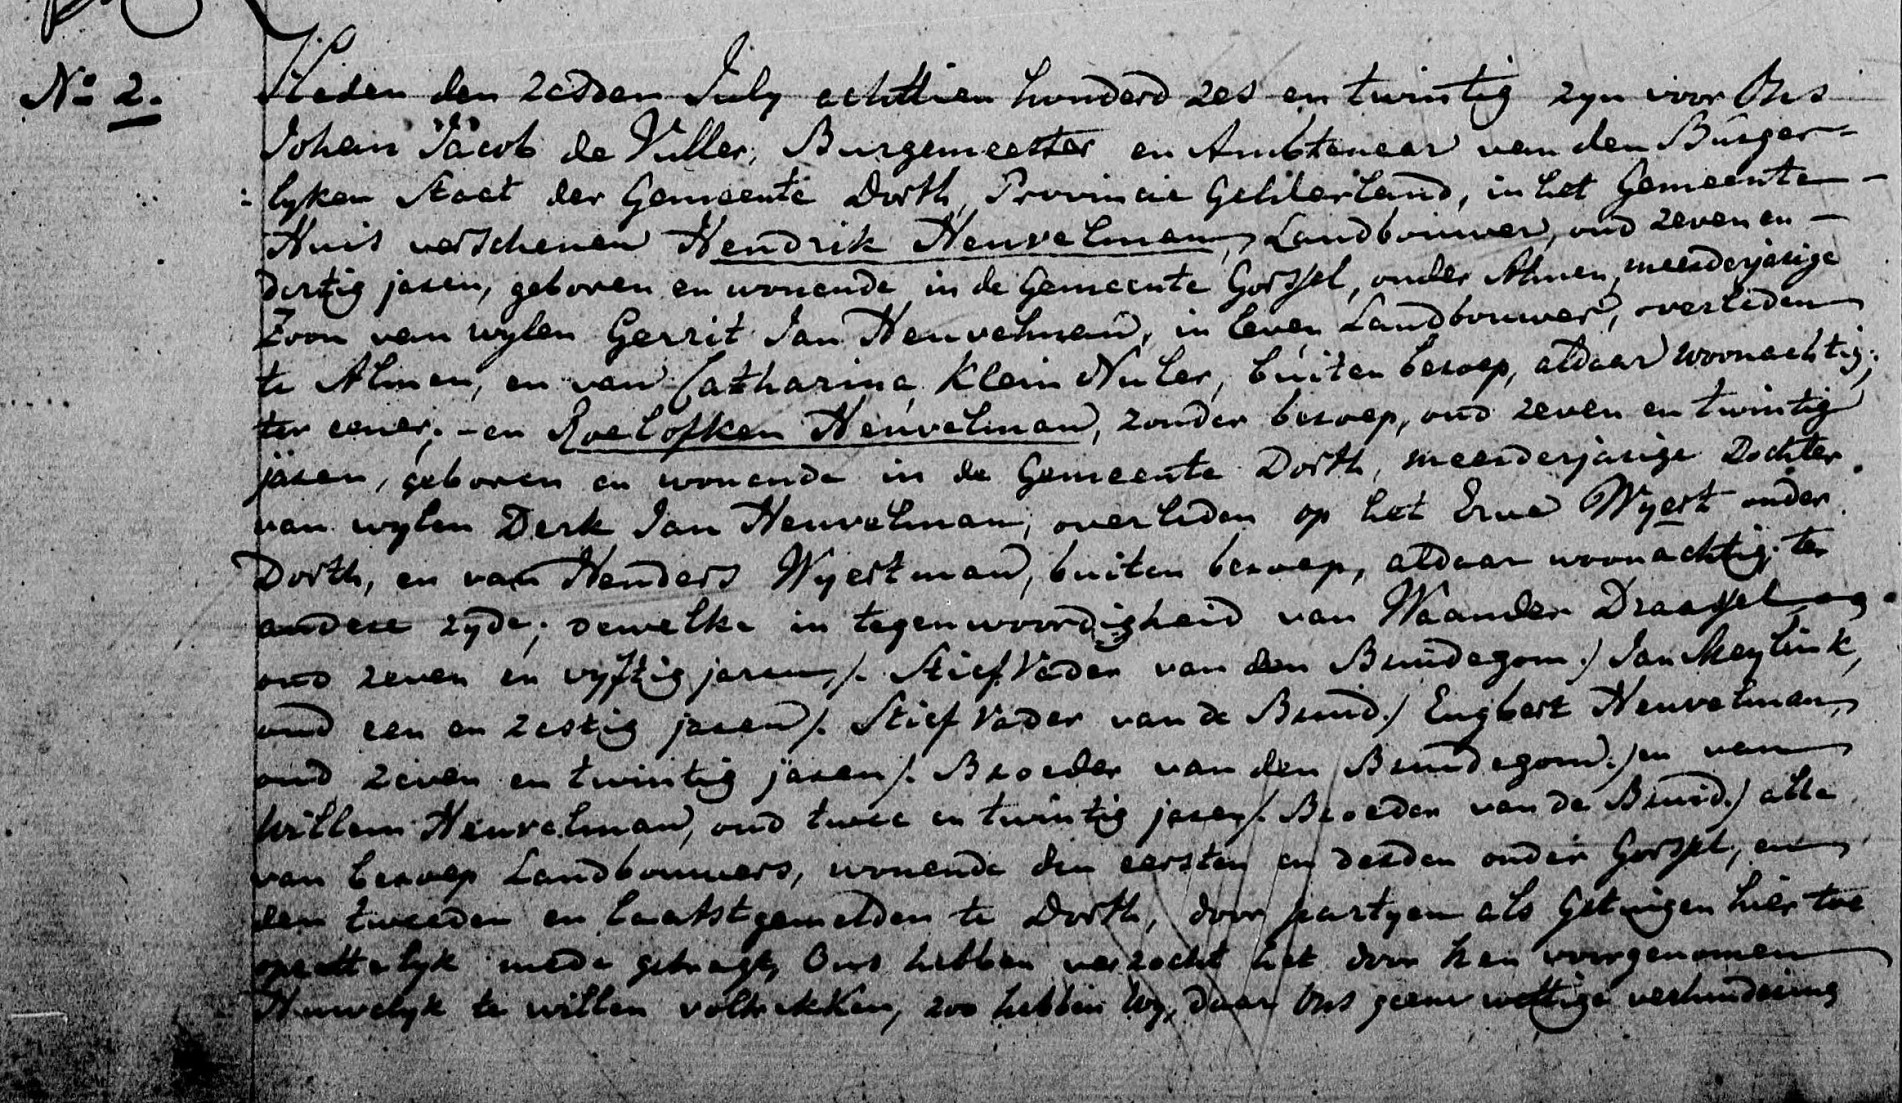 No 2.
Heden den zesden July achttien honderd zes en twintig zyn voor Ons
Johan Jacob de Vuller, Burgemeester en Ambtenaar van den Burger-
lyken Staat der Gemeente Dorth, Provincie Gelderland, in het Gemeente
Huis verschenen Hendrik Heuvelman, Landbouwer, oud zeven en
dertig jaren, geboren en wonende in de Gemeente Gorssel, onder Almen, meerderjarige
Zoon van wylen Gerrit Jan Heuvelman, in leven Landbouwer, overleden
te Almen, en van Catharina Klein Nuler, buiten beroep, aldaar woonachtig;
ter eener; - en Roelofken Heuvelman, zonder beroep, oud zeven en twintig
jaren, geboren en wonende in de Gemeente Dorth, meerderjarige Dochter
van wylen Derk Jan Heuvelman, overleden op het Erve Wyert onder
Dorth, en van Henders Wyertman, buiten beroep, aldaar woonachtig; ter
andere zyde; dewelke in tegenwoordigheid van Waander Draassel
oud zeven en vyftig jaren /. Stief Vader van den Bruidegom ./ Jan Meylink,
oud een en zestig jaren /. Stief Vader van de Bruid ./ Engbert Heuvelman,
oud zeven en twintig jaren /. Broeder van den Bruidegom ./ en van
Willem Heuvelman, oud twee en twintig jaren /. Broeder van de Bruid ./ alle
van beroep Landbouwers, wonende den eersten en derden onder Gorssel, en
den tweeden en laatstgemelden te Dorth, door partyen als Getuigen hier toe
opzettelyk mede gebragt, Ons hebben verzocht het door hen voorgenomen
Huwelyk te willen voltrekken, zoo hebben Wy, daar Ons geene wettige verhindering